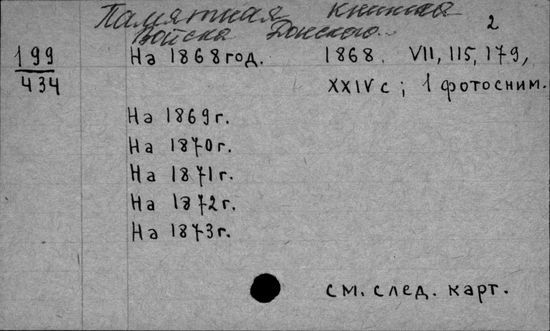 Памятная книжка 2
Войска Донского.
199 На 1868 год. 1868. VII, 115, 179,
434 XXIV с ; 1 фотосним.
На 1869 г.
На 1870 г.
На 1871 г.
На 1872 г.
На 1873 г.
см. след. карт.